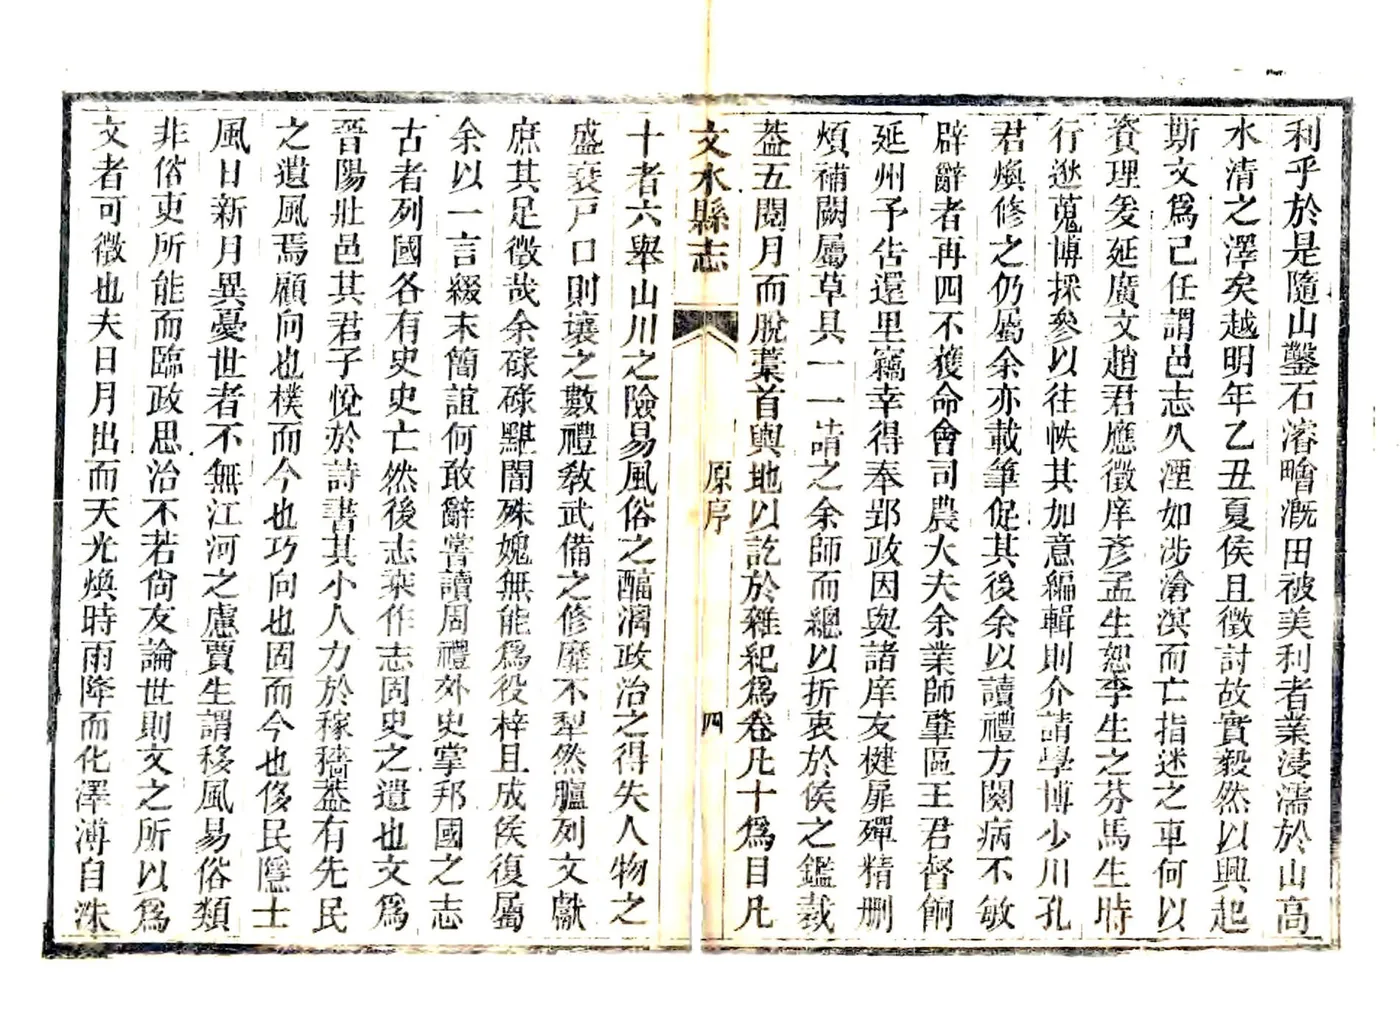 利乎於是隨山鑿石濬畬漑田被美利者業浸濡於山高
水清之澤矣越明年乙丑夏侯且徵討故實毅然以興起
斯文爲己任謂邑志久湮如涉滄溟而亡指迷之車何以
資理爰延廣文趙君應徵庠彥孟生恕李生之芬馬生時
行逖蒐博採參以往帙其加意編輯則介請學博少川孔
君煥修之仍屬余亦載筆促其後余以讀禮方闋病不敏
辟辭者再四不獲命會司農大夫余業師肇區王君督餉
延州予告還里竊幸得奉郢政因與諸庠友楗扉殫精刪
煩補闕屬草具一一請之余師而總以折衷於侯之鑑裁
葢五閱月而脫藁首輿地以訖於雜紀爲卷凡十爲目凡
文水縣志
原序
四
十者六舉山川之險易風俗之醨漓政治之得失人物之
盛衰戸口則壤之數禮敎武備之修靡不犁然臚列文獻
庶其足徵哉余碌碌黮闇殊媿無能爲役梓且成侯復屬
余以一言綴末簡誼何敢辭嘗讀周禮外史掌邦國之志
古者列國各有史史亡然後志乘作志固史之遺也文爲
晉陽壯邑其君子悅於詩書其小人力於稼穡葢有先民
之遺風焉顧向也樸而今也巧向也固而今也侈民隱士
風日新月異憂世者不無江河之慮賈生謂移風易俗類
非俗吏所能而臨政思治不若尙友論世則文之所以爲
文者可徵也夫日月出而天光煥時雨降而化澤溥自洙